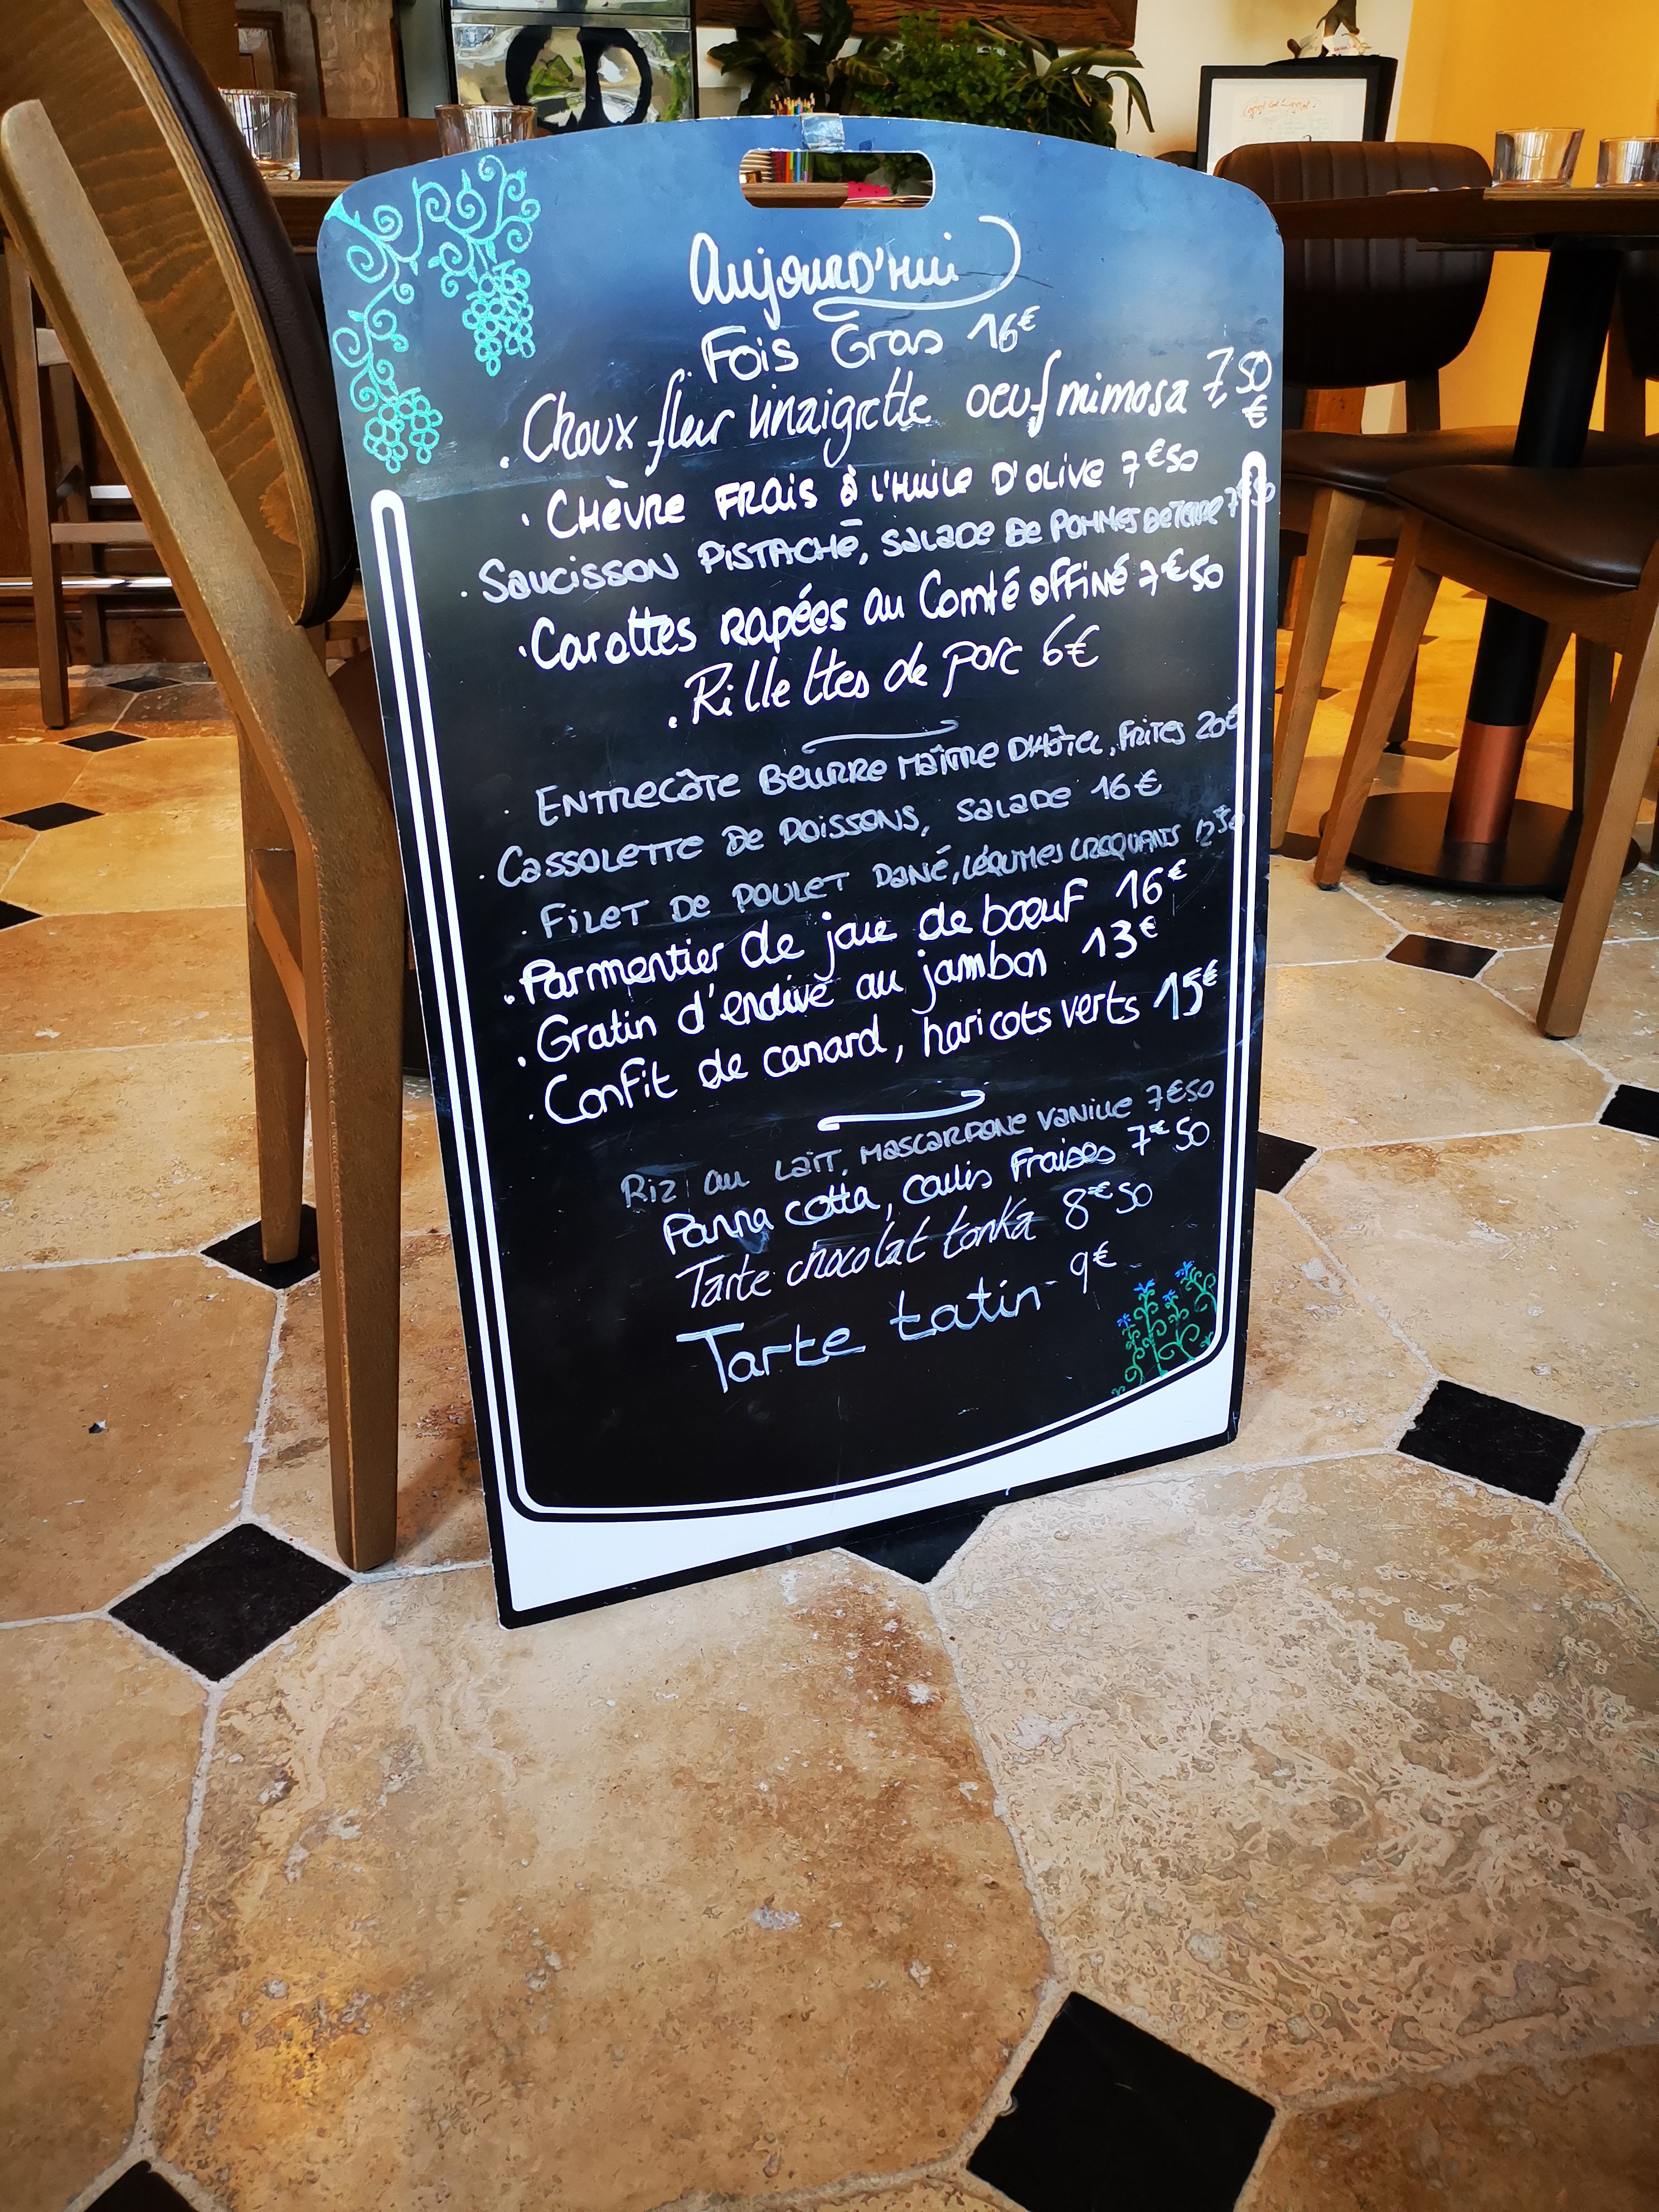 AujourD'Hui
. Fois Gras 16€
. Choux fleur vinaigrette oeuf mimosa 7,50 €
. CHÈVRE FRAIS à L'HUILE D'OLIVE 7€50
. SAUCISSON PISTACHE, SALADE DE POMMES DE TERRE 7€50
. Carottes RAPÉES au Comté affiné 7€50
. Rillettes de porc 6€
. ENTRECÔTE BEURRE MAÎTRE D'HÔTEL, FRITES 20€
. CASSOLETTE DE POISSONS, SALADE 16€
. FILET DE POULET PANÉ, LÉGUMES CROQUANTS 12€50
. Parmentier de joue de bœuf 16€
. Gratin d'endive au jambon 13€
. Confit de canard, haricots verts 15€
Riz au LAIT, MASCARPONE VANILLE 7€50
Panna cotta, coulis Fraises 7€50
Tarte chocolat tonka 8€50
Tarte tatin - 9€